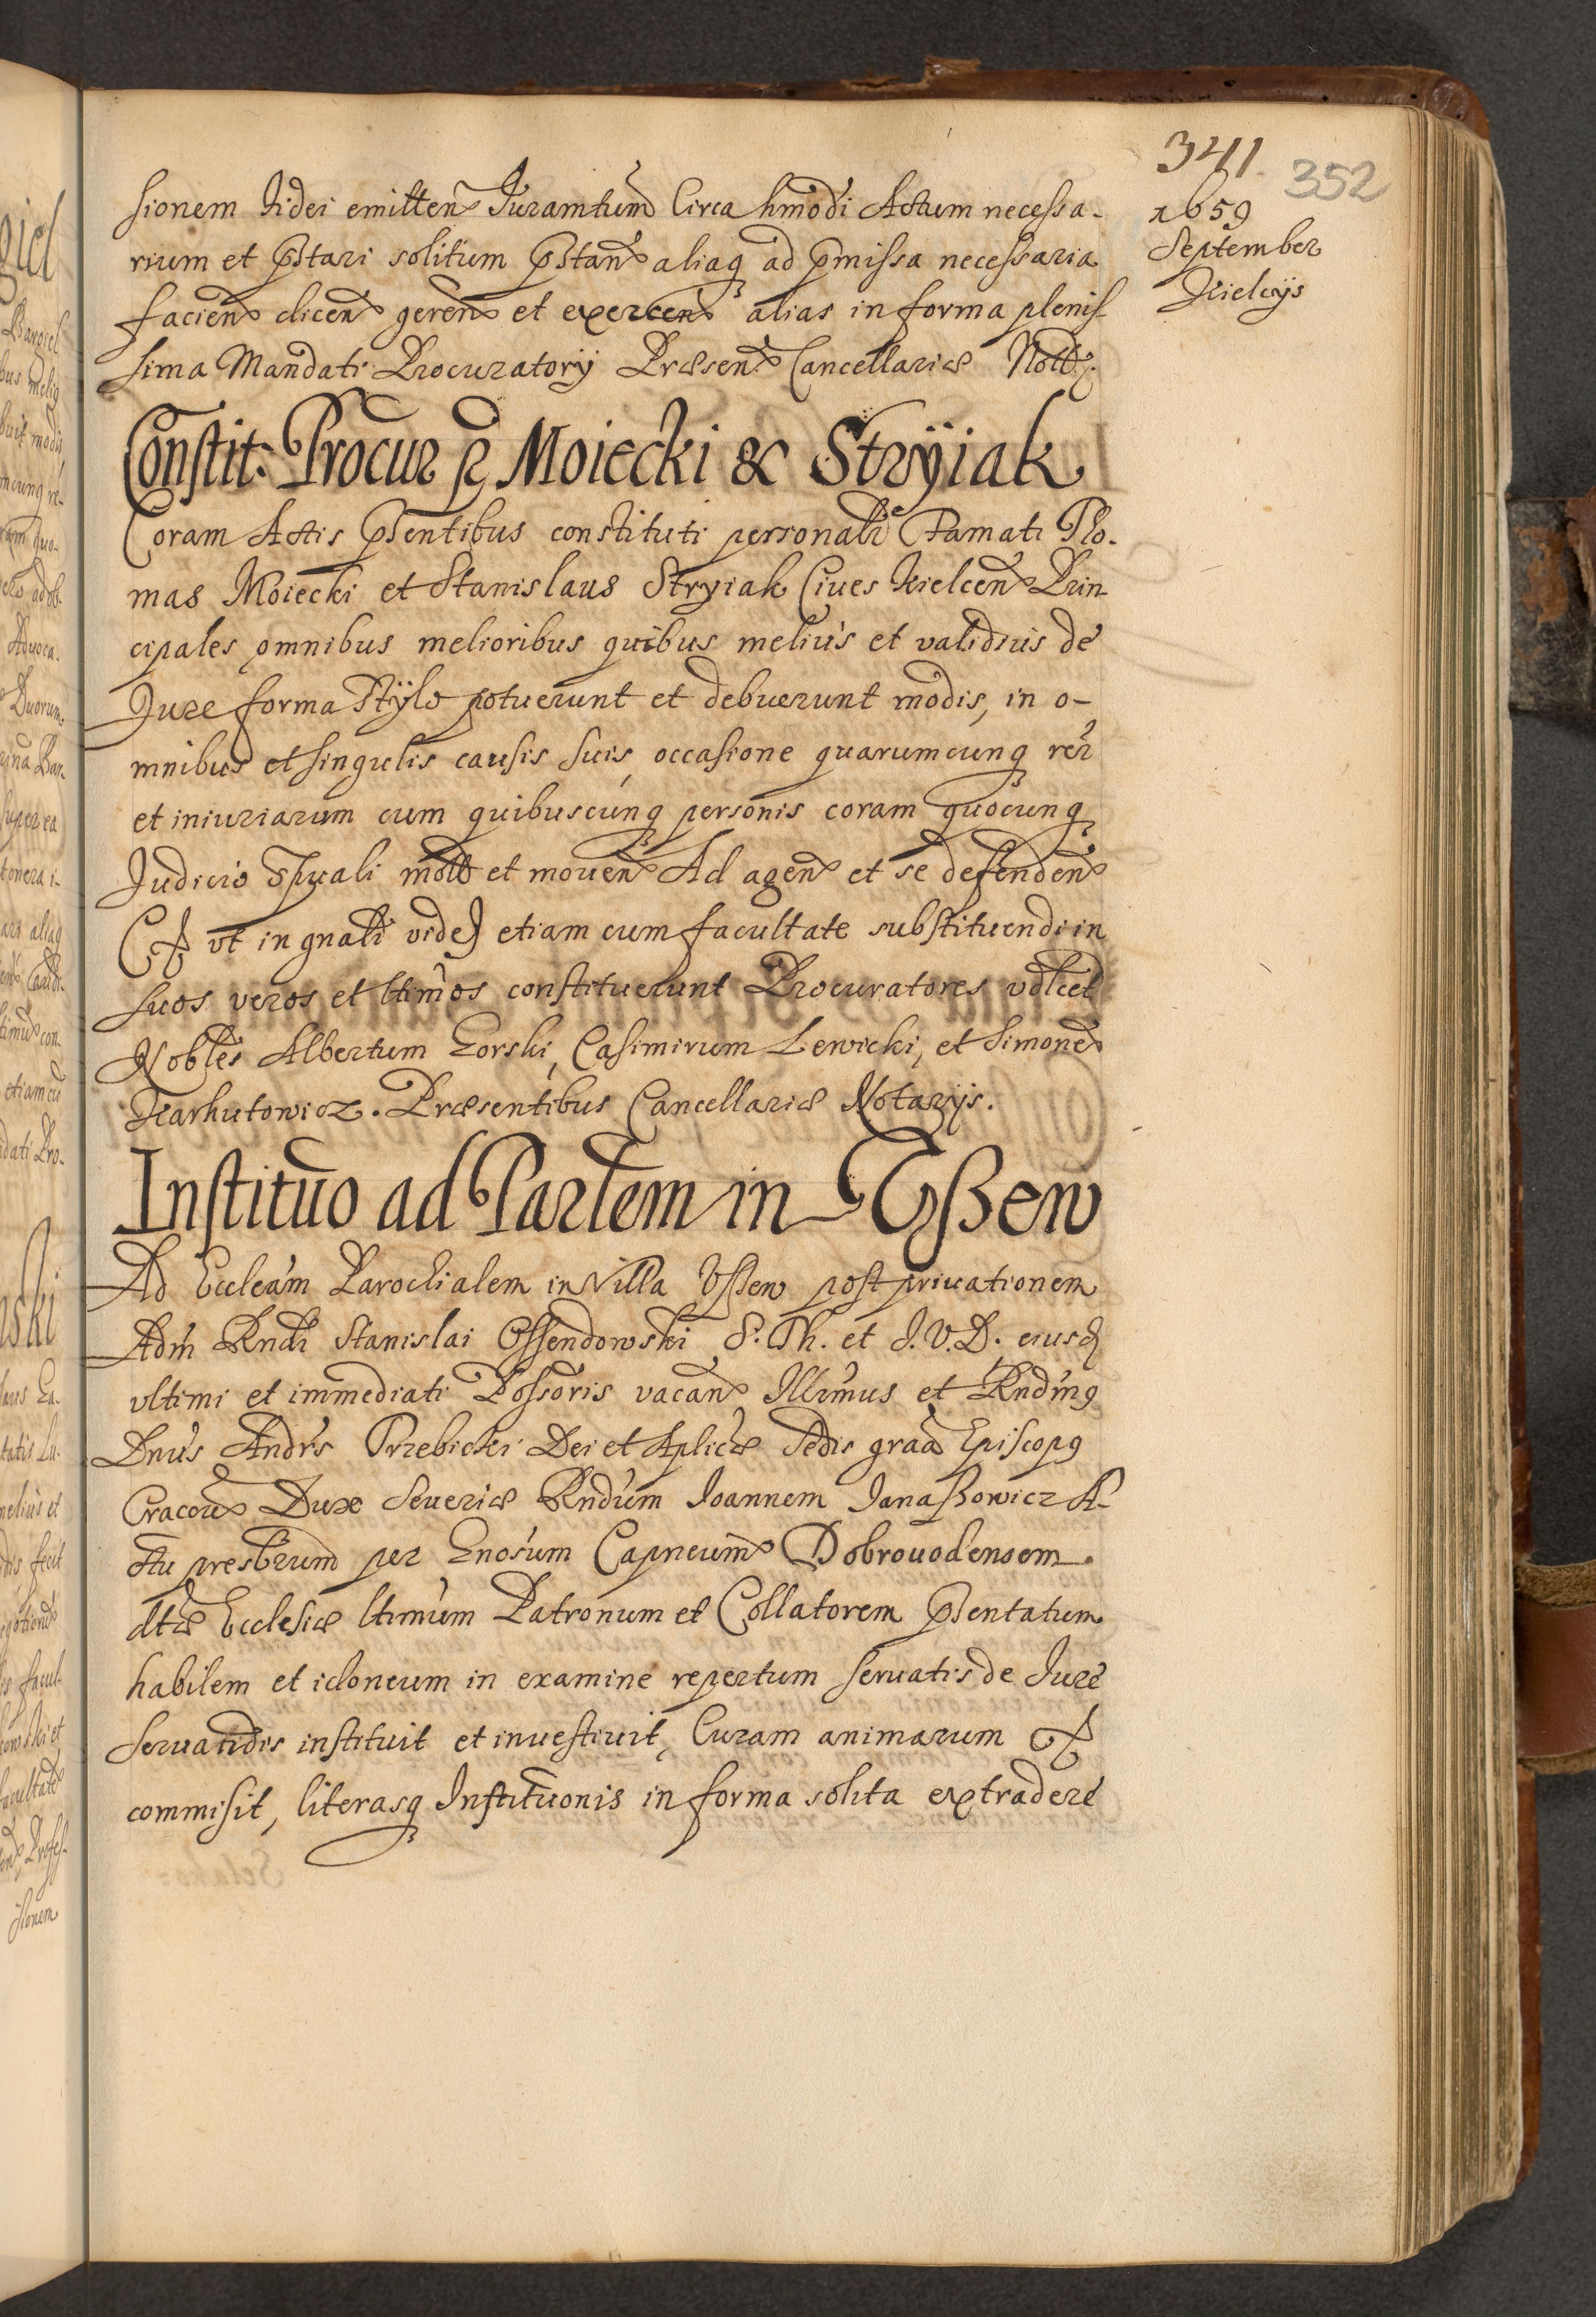 341 352
1659
September
Kielcijs
sionem Fidei emitten Juramtum Circa hmodi Actum necessa-
rium et pstari solitum pstan aliaq ad pmissa necessaria
facien dicen geren et exercen alias in forma plenis-
sima Mandati Procuratorij Præsen Cancellariæ Nott.
Constit: Procur p Moiecki & Stryiak
Coram Actis psentibus constituti personalr Famati Tho-
mas Moiecki et Stanislaus Stryiak Ciues Kielcen Prin-
cipales omnibus melioribus quibus melius et validius de
Jure forma Stÿlo potuerunt et debuerunt modis, in o-
mnibus et singulis causis suis, occasione quarumcunq rer
et iniuriarum cum quibuscunq personis coram quocunq
Judicio Spuali mott et mouen Ad agen et se defenden
(& vt in gnali vide) etiam cum facultate substituendi in
suos veros et ltimos constituerunt Procuratores vdlcet
Nobles Albertum Gorski, Casimirum Lewicki, et Simone
Karhutowicz. Præsentibus Cancellariæ Notarijs.
Institúo ad Partem in Vßew
Ad Eccleam Parochialem in Villa Vssew post priuationem
Adm Rndi Stanislai Ossendowski S. Th. et J. V. D. eiusd
vltimi et immediati Possoris vacan Illmus et Rndmq
Dnus Andrs Trzebicki Dei et Aplicæ Sedis graa Episcopq
Cracou Dux Seueriæ Rndum Joannem Janaßowicz A-
ctu presbrum per Gnosum Capneum Dobrouodensem
dtæ Ecclesiæ ltimum Patronum et Collatorem psentatum
habilem et idoneum in examine repertum seruatis de Jure
seruandis instituit et inuestiuit, Curam animarum &
commisit, literasq Institúonis in forma solita extradere